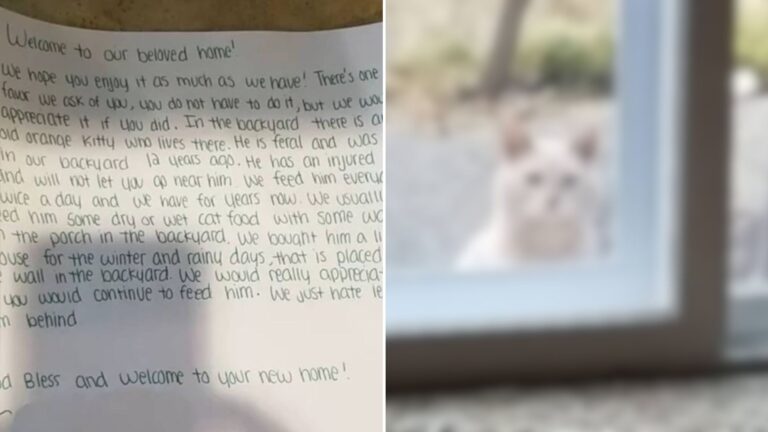 Welcome to our beloved home!
We hope you enjoy it as much as we have! There's one
favor we ask of you, you do not have to do it, but we wou
appreciate it if you did. In the backyard there is a
old orange kitty who lives there. He is feral and was
in our backyard 12 years ago. He has an injured
and will not let you go near him. We feed him every
twice a day and we have for years now. We usuall
eed him some dry or wet cat food with some wa
n the porch in the backyard. We bought him a li
ouse for the winter and rainy days, that is placed
e wall in the backyard. We would really apprecia-
you would continue to feed him. We just hate le
m behind
d Bless and welcome to your new home!